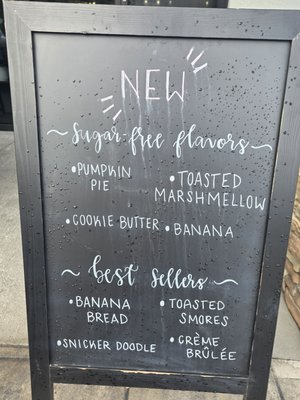 NEW
sugar-free flavors
•PUMPKIN PIE
•TOASTED MARSHMELLOW
•COOKIE BUTTER
•BANANA
best sellers
•BANANA BREAD
•TOASTED SMORES
•SNICKER DOODLE
•CRÈME BRÛLÉE